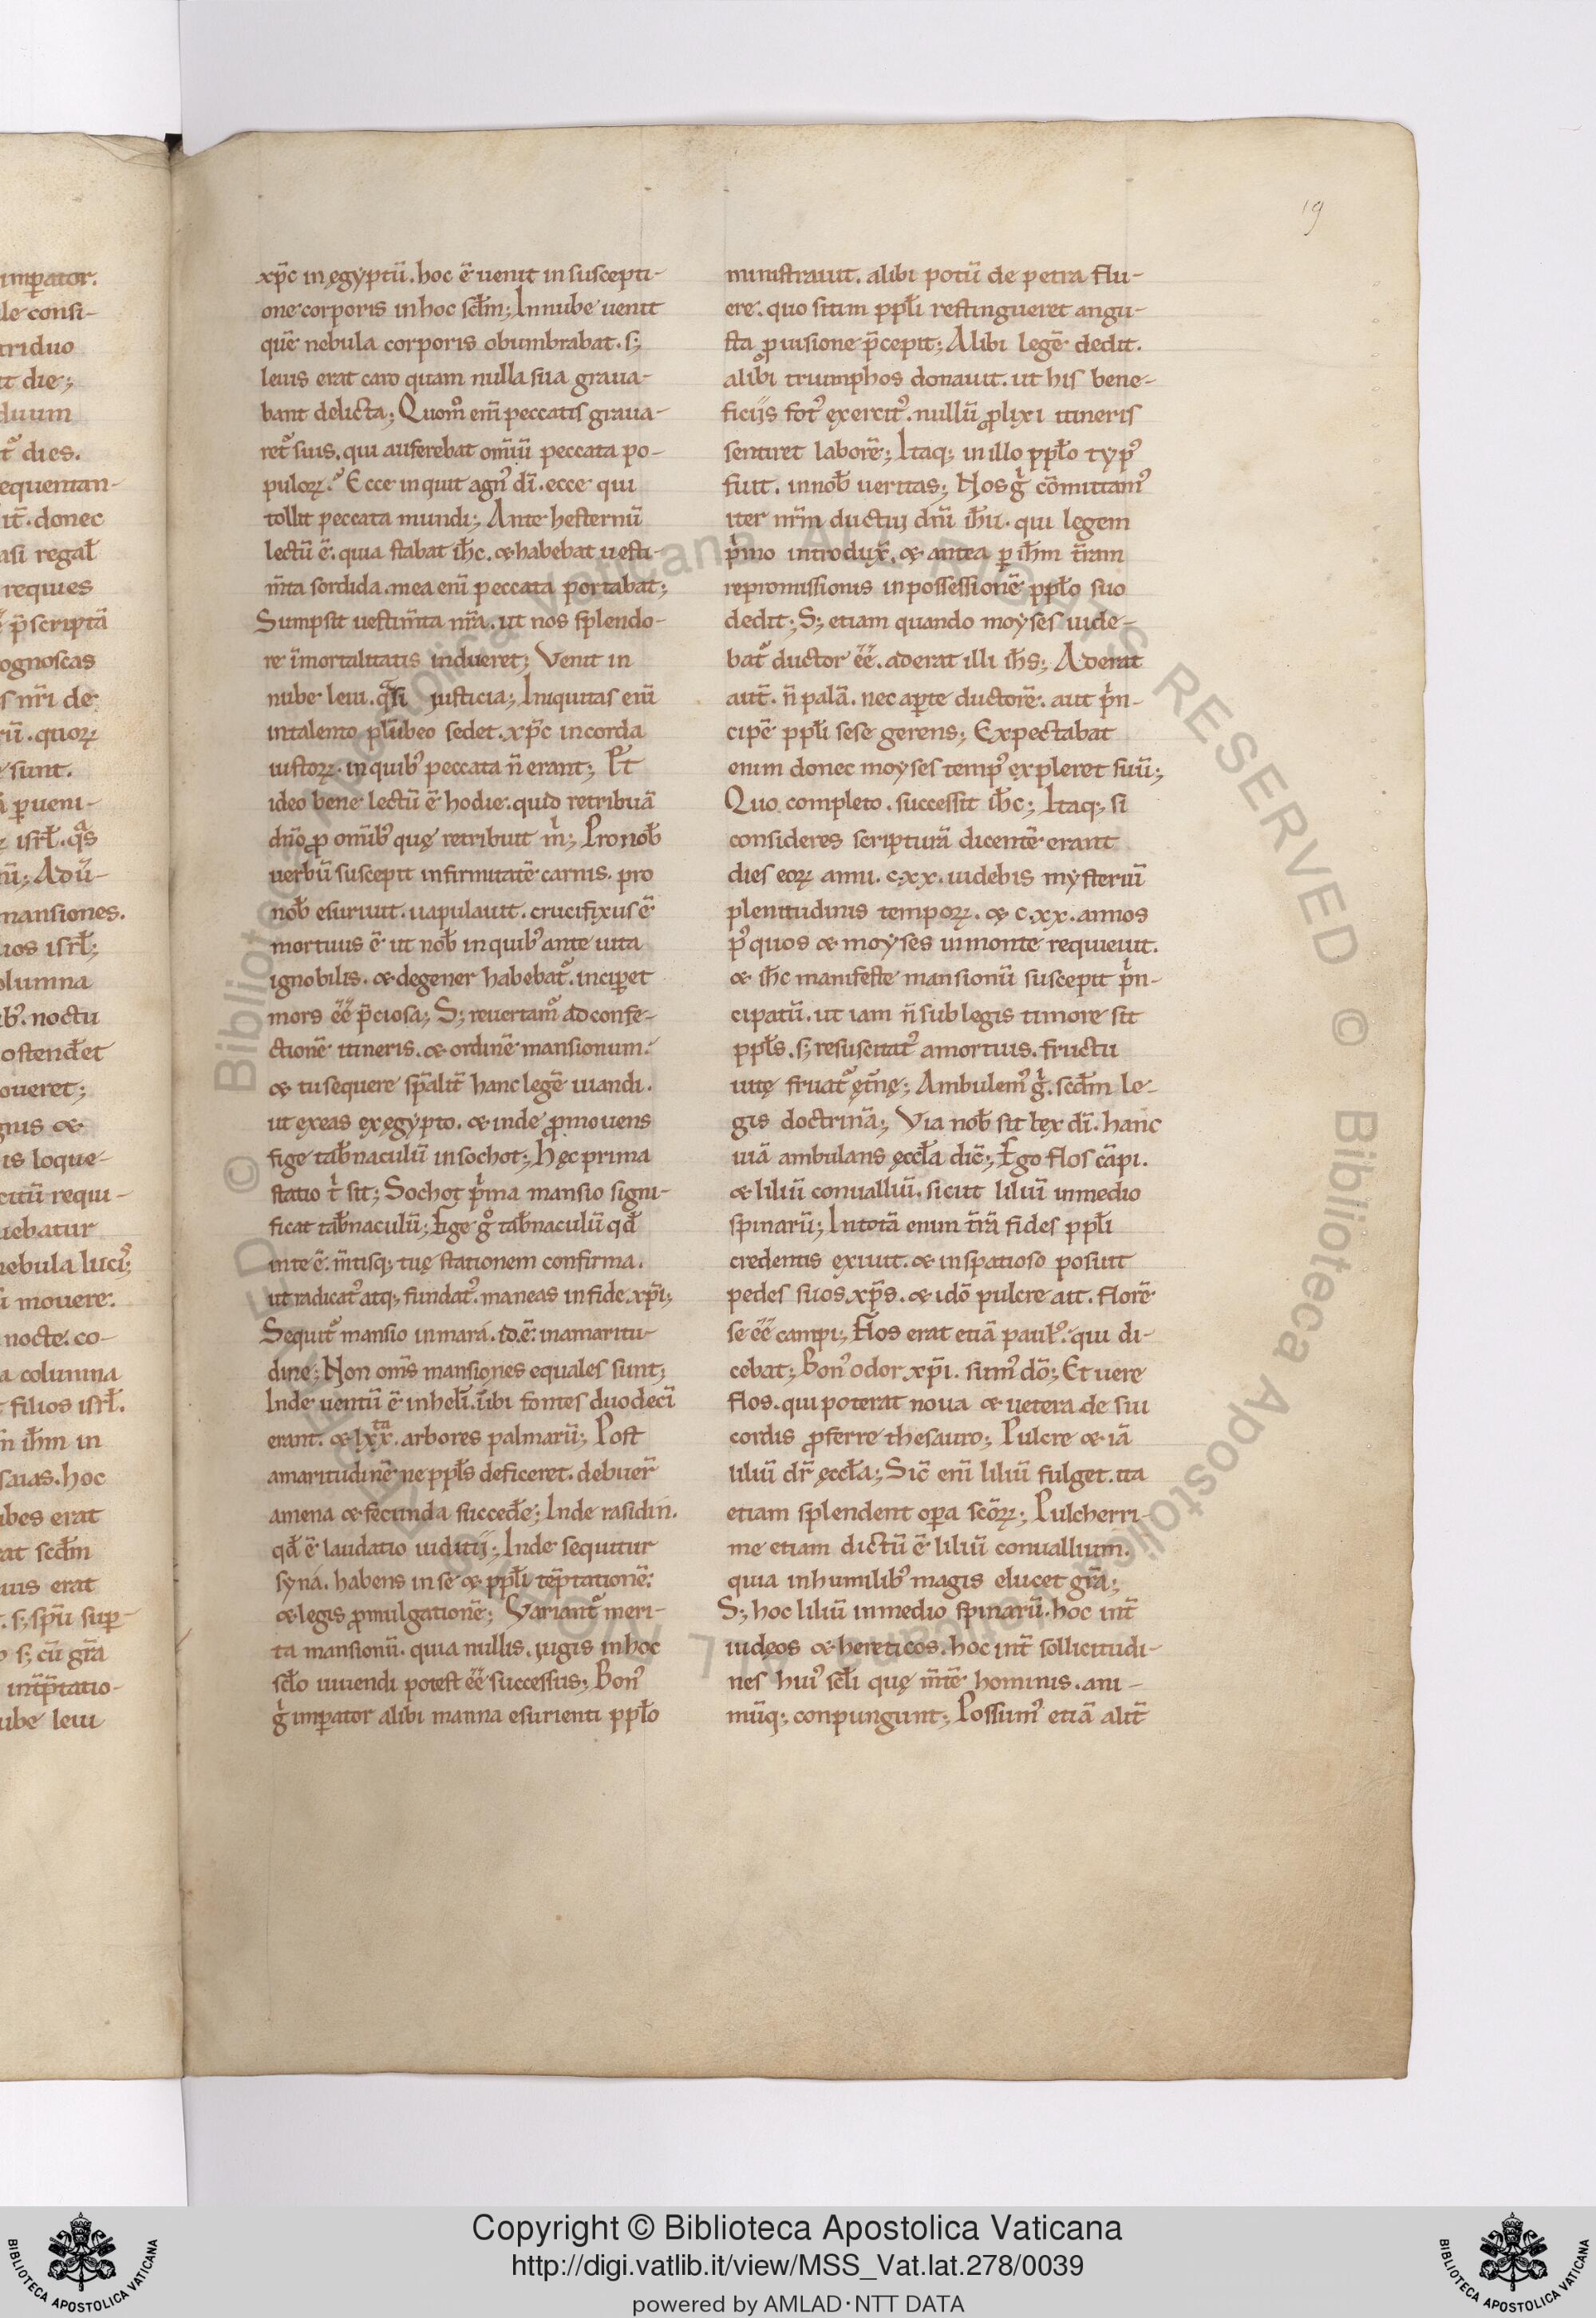 imperator.
le consi-
triduo
it die;
duum
dies.
equentan-
it̄. donec
asi regał
reques
p̄scriptā
ognoscas
s nr̄i de
rū. quoꝝ
sunt.
ꝑueni-
isrł. qͣs
ū; Adū-
mansiones.
uos isrł;
olumna
ibꝰ. noctu
ostenđet
oueret;
gnis ⁊
is loque-
citū requi-
uebatur
nebula lucꝰ;
ū mouere:
nocte. co-
a columna
filios isrł.
ih̄m in
saias. hoc
ubes erat
rat scđm
uis erat
s; spū suꝑ-
s; cū gr̄a
int̄p̄tatio-
ube leui
xp̄c in ęgyptū. hoc ē uenit in suscepti-
one corporis in hoc scłm; In nube uenit
quē nebula corporis obumbrabat. s;
leuis erat caro quam nulla sua graua-
bant delicta; Quom̊ eni̅ peccatis graua-
ret᷑ suis. qui auferebat om̄iū peccata po-
puloꝝ. Ecce inquit agnꝰ dī. ecce qui
tollit peccata mundi; Ante hesternū
lectū ē. quia stabat ih̄c. ⁊ habebat uesti-
m̄ta sordida. mea eni̅ peccata portabat;
Sumpsit uestim̄ta nr̄a. ut nos splendo-
re īmortalitatis indueret; Venit in
nube leui. qͣsi iusticia; Iniquitas eni̅
in talento plūbeo sedet. xp̄c in corda
iustoꝝ. in quibꝰ peccata n̄ erant; Et
ideo bene lectū ē hodie. quid retribuā
dn̄o ꝓ om̄ibꝰ quę retribuit m̍; Pro noƀ
uerbū suscepit infirmitatē carnis. pro
noƀ esuriuit. uapulauit. crucifixus ē
mortuus ē ut noƀ in quibꝰ ante uita
ignobilis. ⁊ degener habebat᷑. inciꝑet
mors ēē p̄ciosa; S; reuertam᷑ ad confe-
ctionē itineris. ⁊ ordinē mansionum.
⁊ tu sequere sp̄alit̄ hanc legē uiandi.
ut exeas ex ęgypto. ⁊ inde ꝓmouens
fige taƀnaculū in sochot; Hęc prima
statio t̍ sit; Sochot p̍ma mansio signi-
ficat taƀnaculū; Fige g̊ taƀnaculū qđ
in te ē. m̄tisq; tuę stationem confirma.
ut radicatꝰ atq; fundatꝰ. maneas in fide xp̄i;
Sequit᷑ mansio in mará. id. ē. in amaritu-
dine; Non om̄s mansiones equales sunt;
Inde uentū ē in heli̅. ubi fontes duodeci̅
erant. ⁊ lxxͭͣ. arbores palmarū; Post
amaritudinē ne ppłs deficeret. debuer̄
amena ⁊ fecunda succeđe; Inde rasidin.
qđ ē laudatio uiditij; Inde sequitur
syná. habens in se ⁊ ppłi tēptationē.
⁊ legis ꝓmulgationē; Variant᷑ meri-
ta mansionū. quia nullis. iugis in hoc
scło uiuendi potest ēē successus; Bonꝰ
g̍ imꝑator alibi manna esurienti ppło
ministrauit. alibi potū de petra flu-
ere. quo sitim ppłi restingueret angu-
sta ꝓuisione p̄cepit; Alibi legē dedit.
alibi triumphos donauit. ut his bene-
ficijs fotꝰ exercitꝰ. nullū ꝓlixi itineris
sentiret laborē; Itaq; in illo ppło typꝰ
fuit. in noƀ ueritas; Nos g̍ cōmittamꝰ
iter nr̄m ductui dn̄i ih̄u. qui legem
p̍mo introdux̄. ⁊ antea ꝑ ih̄m t̄ram
repromissionis in possessionē ppło suo
dedit; S; etiam quando moyses uide-
bat᷑ ductor ēē. aderat illi ih̄s; Aderat
aut̄. n̄ palā. nec aꝑte ductorē. aut p̍n-
cipē ppłi sese gerens; Expectabat
enim donec moyses tempꝰ expleret suū;
Quo completo. successit ih̄c; Itaq; si
consideres scripturā dicentē erant
dies eoꝝ anni. c.xx. uidebis mysteriū
plenitudinis tempoꝝ. ⁊ c.xx. annos
pꝰ quos ⁊ moyses in monte requieuit.
⁊ ih̄c manifeste mansionū suscepit p̍n-
cipatū. ut iam n̄ sub legis timore sit
ppłs. s; resuscitatꝰ a mortuis. fructu
uitę fruat᷑ ęt̄nę; Ambulemꝰ g̍. scđm le-
gis doctrinā; Via noƀ sit lex dī. hanc
uiā ambulans ęccła dic̄; Ego flos cāpi.
⁊ liliū conualliū. sicut liliū in medio
spinarū; In totā enim t̄rā fides ppłi
credentis exiuit. ⁊ in spatioso posuit
pedes suos xp̄s. ⁊ idō pulcre ait. florē
se ēē campi; Flos erat etiā paulꝰ. qui di-
cebat; Bonꝰ odor xp̄i. sumꝰ dō; Et uere
flos. qui poterat noua ⁊ uetera de sui
cordis ꝓferre thesauro; Pulcre ⁊ iā
liliū dr̄ ęccła; Sic̄ eni̅ liliū fulget. ita
etiam splendent oꝑa sc̄oꝝ; Pulcherri-
me etiam dictū ē liliū conuallium.
quia in humilibꝰ magis elucet gr̄a;
S; hoc liliū in medio spinarū. hoc int̄
iudęos ⁊ hereticos. hoc int̄ sollicitudi-
nes huiꝰ scłi quę m̄tē hominis. ani-
mūq; conpungunt; Possumꝰ etiā alit̄
19
© Biblioteca Apostolica Vaticana ALL RIGHTS RESERVED
Copyright © Biblioteca Apostolica Vaticana
http://digi.vatlib.it/view/MSS_Vat.lat.278/0039
powered by AMLAD·NTT DATA
BIBLIOTECA APOSTOLICA VATICANA
BIBLIOTECA APOSTOLICA VATICANA